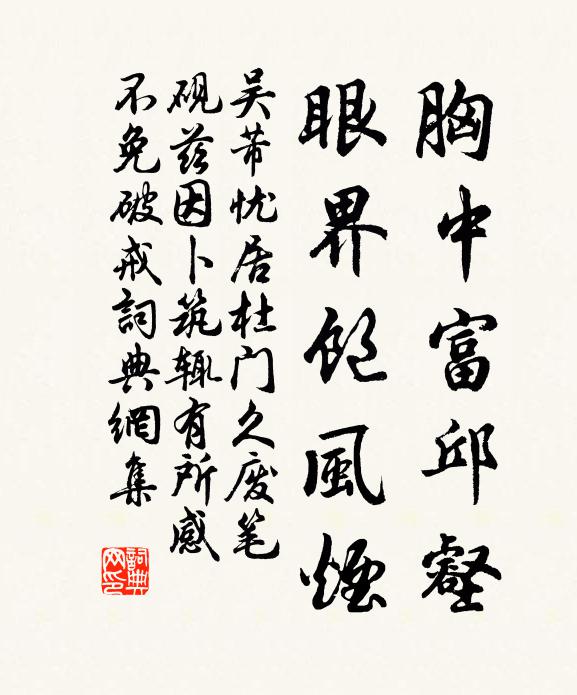 胸中富邱壑
眼界饱風煙
吴芾忧居杜门久废笔
砚兹因卜筑辄有所感
不免破戒詞典網集
詞典网印